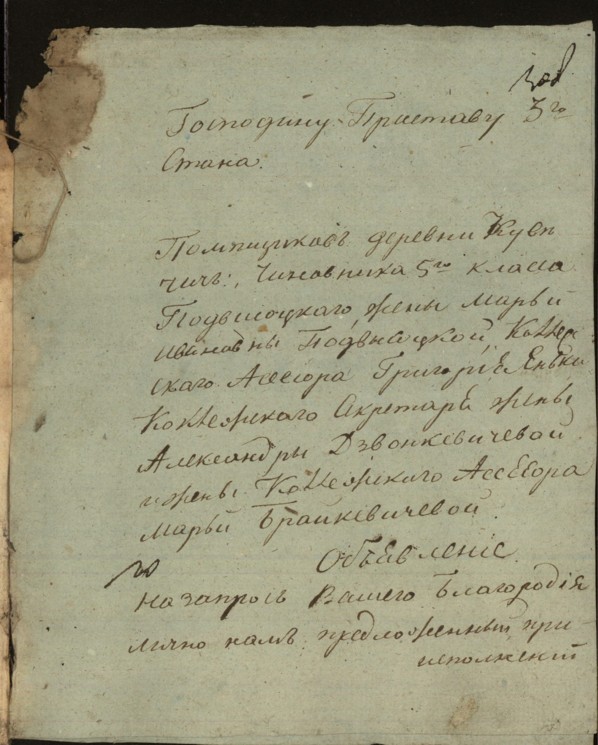 Господину Приставу 3го
Стана.
Помѣщиковъ деревни Куве
чичъ:, Чиновника 5го класса
Подвысоцкаго, жены Марьи
Ивановны Подвысоцкой, Коллеж
скаго Асесора Григорія
Коллежскаго Секретаря жены
Александры Дзвонкевичевой
и жены Коллежскаго Асесора
Марьи Брайкевичевой.
Объявленіе.
На запросъ Вашего Благородія
лично намъ предложенный при
исполненіи